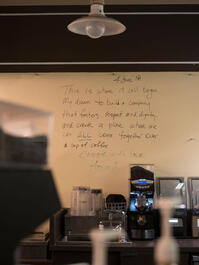 This is where it all began
My dream to build a company
that fosters respect and dignity
and create a place where we
can ALL come together over
a cup of coffee